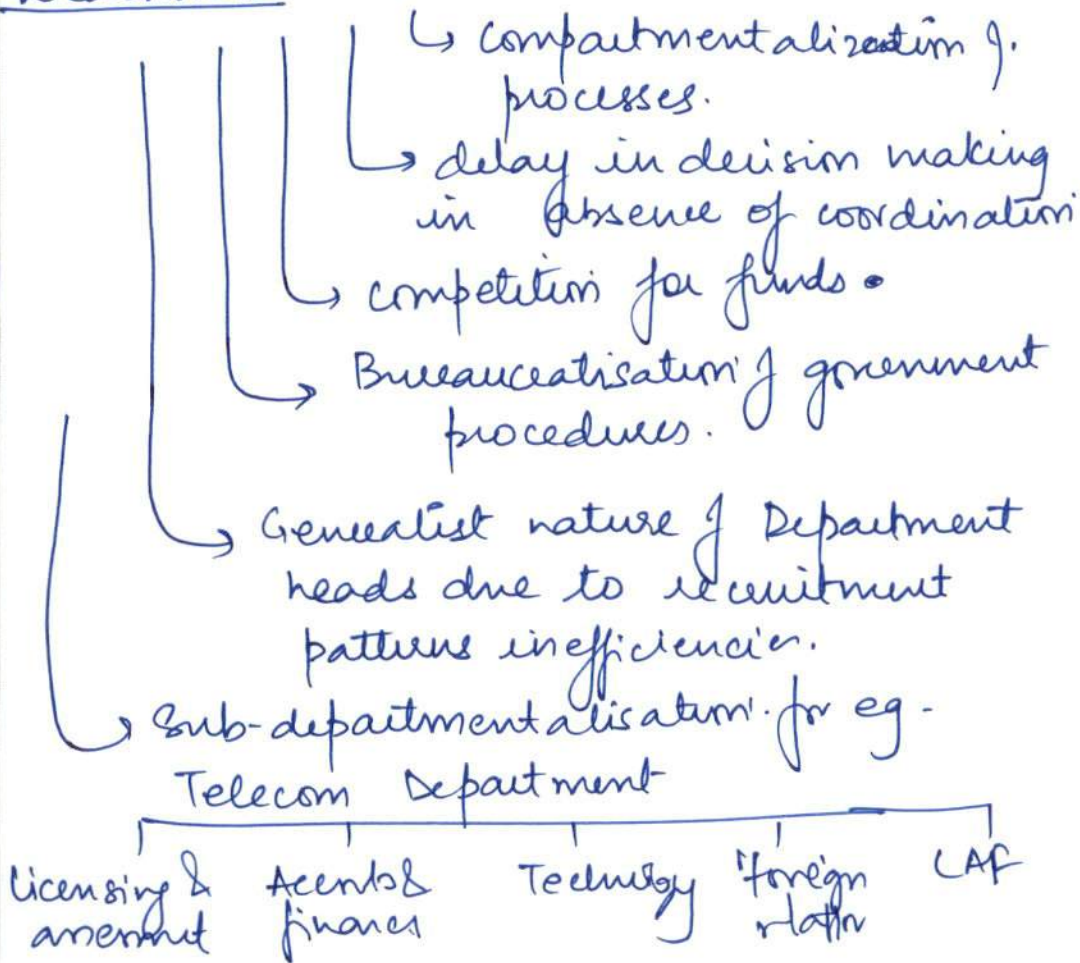 ↳ compartmentalization of
processes.
→ delay in decision making
in absence of coordination
→ competition for funds.
→ Bureaucratisation of government
procedures.
→ Generalist nature of Department
heads due to recruitment
patterns inefficiencies.
→ Sub-departmentalisation. for eg -
Telecom Department
Licensing & Accounts & Technology foreign LAF
finance